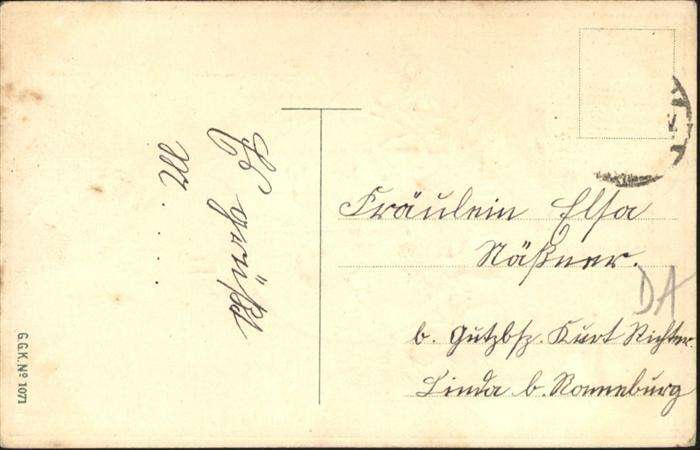 Es grüßt
M.....
Fräulein Elsa
Näßner.
b. Gutzbsz. Kurt Richter.
Linda b. Ronneburg
DA
G.G.K. Nº 1071